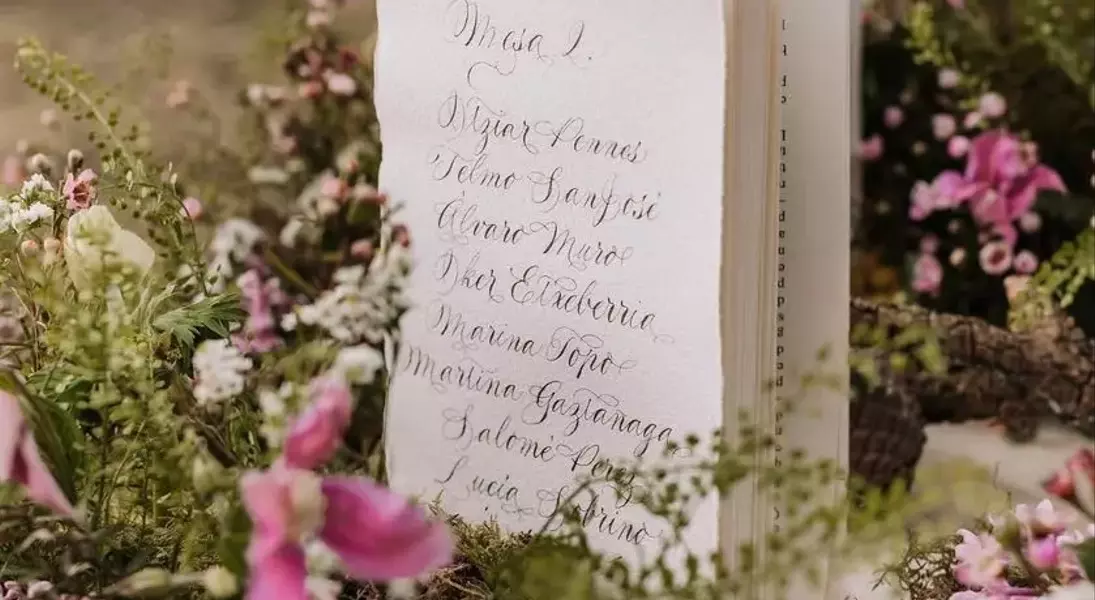 Mesa 2.
Itziar Pennes
Telmo SanJosé
Álvaro Muro
Iker Etxeberria
Marina Topo
Martina Gaztañaga
Salomé Perez
Lucia Sobrino